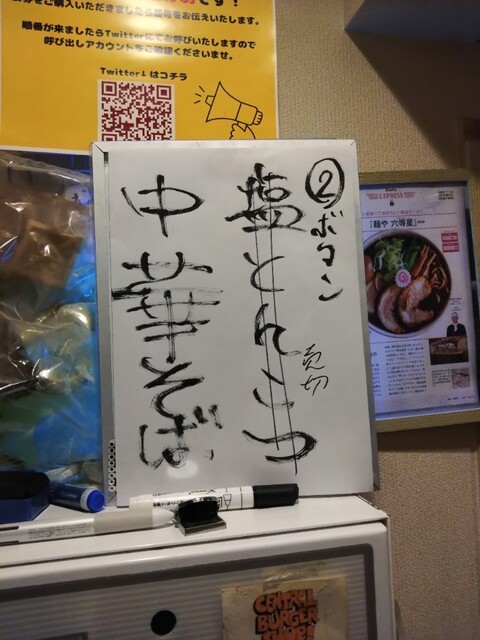 をご購入いただきましたら番号をお伝えいたします。
順番が来ましたらTwitterにてお呼びいたしますので
呼び出しアカウントをご確認くださいませ。
Twitter↓はコチラ
②ボタン
塩とんこつ
売切
中華そば
EXPRESS
「麺や 六等星」
CENTRAL
BURGER